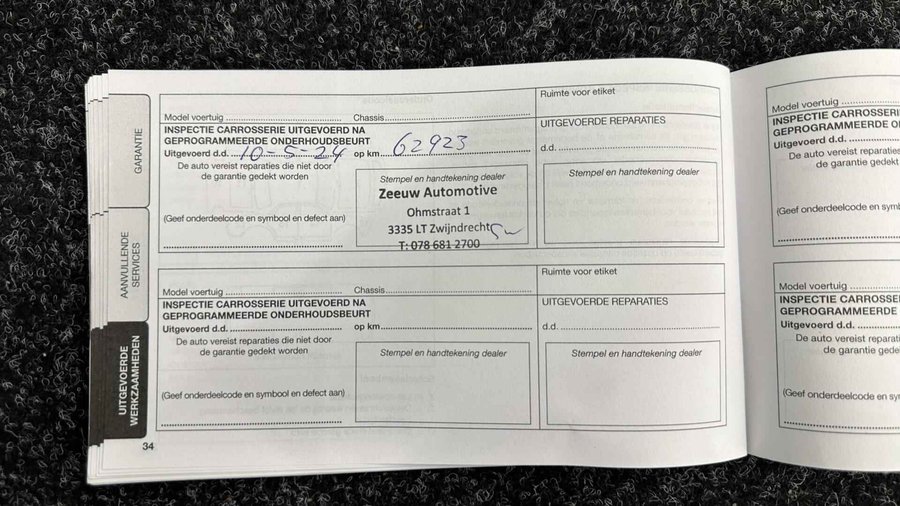 GARANTIE
AANVULLENDE
SERVICES
UITGEVOERDE
WERKZAAMHEDEN
Model voertuig Chassis
INSPECTIE CARROSSERIE UITGEVOERD NA
GEPROGRAMMEERDE ONDERHOUDSBEURT
Uitgevoerd d.d. 10-5-24 op km 62923
De auto vereist reparaties die niet door
de garantie gedekt worden
(Geef onderdeelcode en symbool en defect aan)
Stempel en handtekening dealer
Zeeuw Automotive
Ohmstraat 1
3335 LT Zwijndrecht
T: 078 681 2700
Ruimte voor etiket
UITGEVOERDE REPARATIES
d.d.
Stempel en handtekening dealer
Model voertuig Chassis
INSPECTIE CARROSSERIE UITGEVOERD NA
GEPROGRAMMEERDE ONDERHOUDSBEURT
Uitgevoerd d.d. op km
De auto vereist reparaties die niet door
de garantie gedekt worden
(Geef onderdeelcode en symbool en defect aan)
Stempel en handtekening dealer
Ruimte voor etiket
UITGEVOERDE REPARATIES
d.d.
Stempel en handtekening dealer
34
Model voertuig
INSPECTIE CARROSSERIE
GEPROGRAMMEERDE
Uitgevoerd d.d.
De auto vereist
de garantie
(Geef onderdeelcode en
Model voertuig
INSPECTIE
GEPROGRAMMEERDE
Uitgevoerd d.d.
De auto vereist
de garantie
(Geef onderdeelcode en